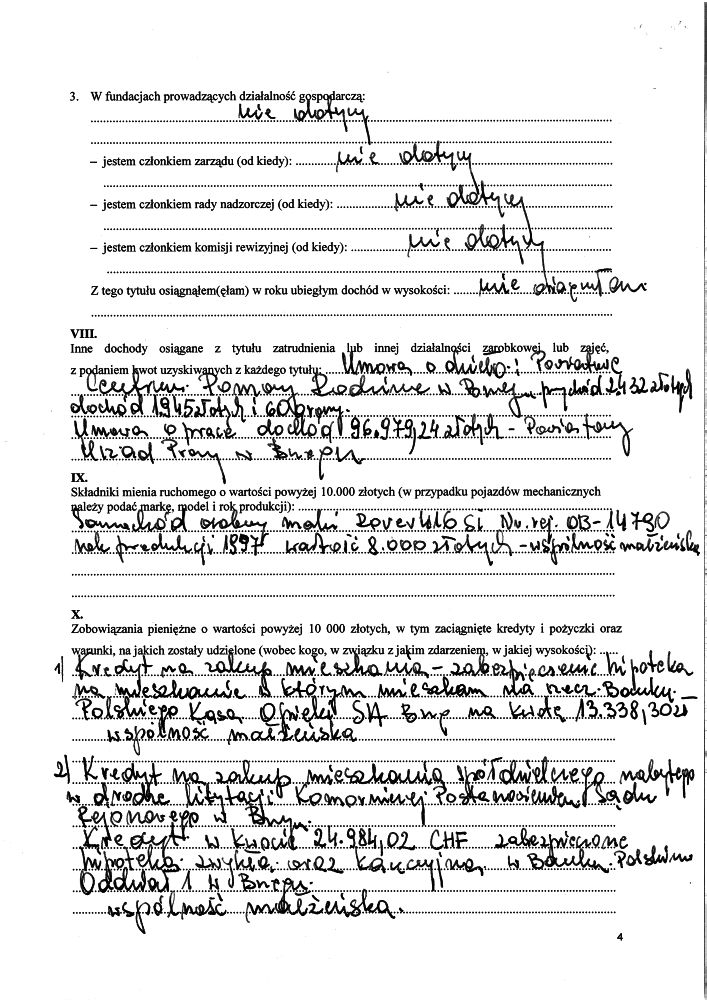 3. W fundacjach prowadzących działalność gospodarczą:
nie dotyczy
– jestem członkiem zarządu (od kiedy): nie dotyczy
– jestem członkiem rady nadzorczej (od kiedy): nie dotyczy
– jestem członkiem komisji rewizyjnej (od kiedy): nie dotyczy
Z tego tytułu osiągnąłem(ęłam) w roku ubiegłym dochód w wysokości: nie osiągnęłam
VIII.
Inne dochody osiągane z tytułu zatrudnienia lub innej działalności zarobkowej lub zajęć,
z podaniem kwot uzyskiwanych z każdego tytułu: Umowa o dzieło: Powiatowe
Centrum Pomocy Rodzinie w przychód 2432 złotych
dochód 1945 złotych i 60 groszy.
Umowa o pracę dochód 96.979,24 złotych – Powiatowy
Urząd Pracy w
IX.
Składniki mienia ruchomego o wartości powyżej 10.000 złotych (w przypadku pojazdów mechanicznych
należy podać markę, model i rok produkcji):
Samochód osobowy marki Rover 416 Si Nr. rej. OB-14790
rok produkcji 1997 wartość 8.000 złotych – wspólność małżeńska
X.
Zobowiązania pieniężne o wartości powyżej 10 000 złotych, w tym zaciągnięte kredyty i pożyczki oraz
warunki, na jakich zostały udzielone (wobec kogo, w związku z jakim zdarzeniem, w jakiej wysokości):
1) Kredyt na zakup mieszkania – zabezpieczenie hipoteka
na mieszkanie w którym mieszkam dla rzecz. Banku –
Polskiego Kasa Opieki SA na kwotę 13.338,30 zł
wspólność małżeńska
2) Kredyt na zakup mieszkania spółdzielczego nabytego
w drodze licytacji Komorniczej Postanowieniem Sądu
Rejonowego w
Kredyt w kwocie 24.984,02 CHF zabezpieczone
hipoteką zwykłą oraz kaucyjną w Banku Polskim
Oddział 1 w
wspólność małżeńska.
4